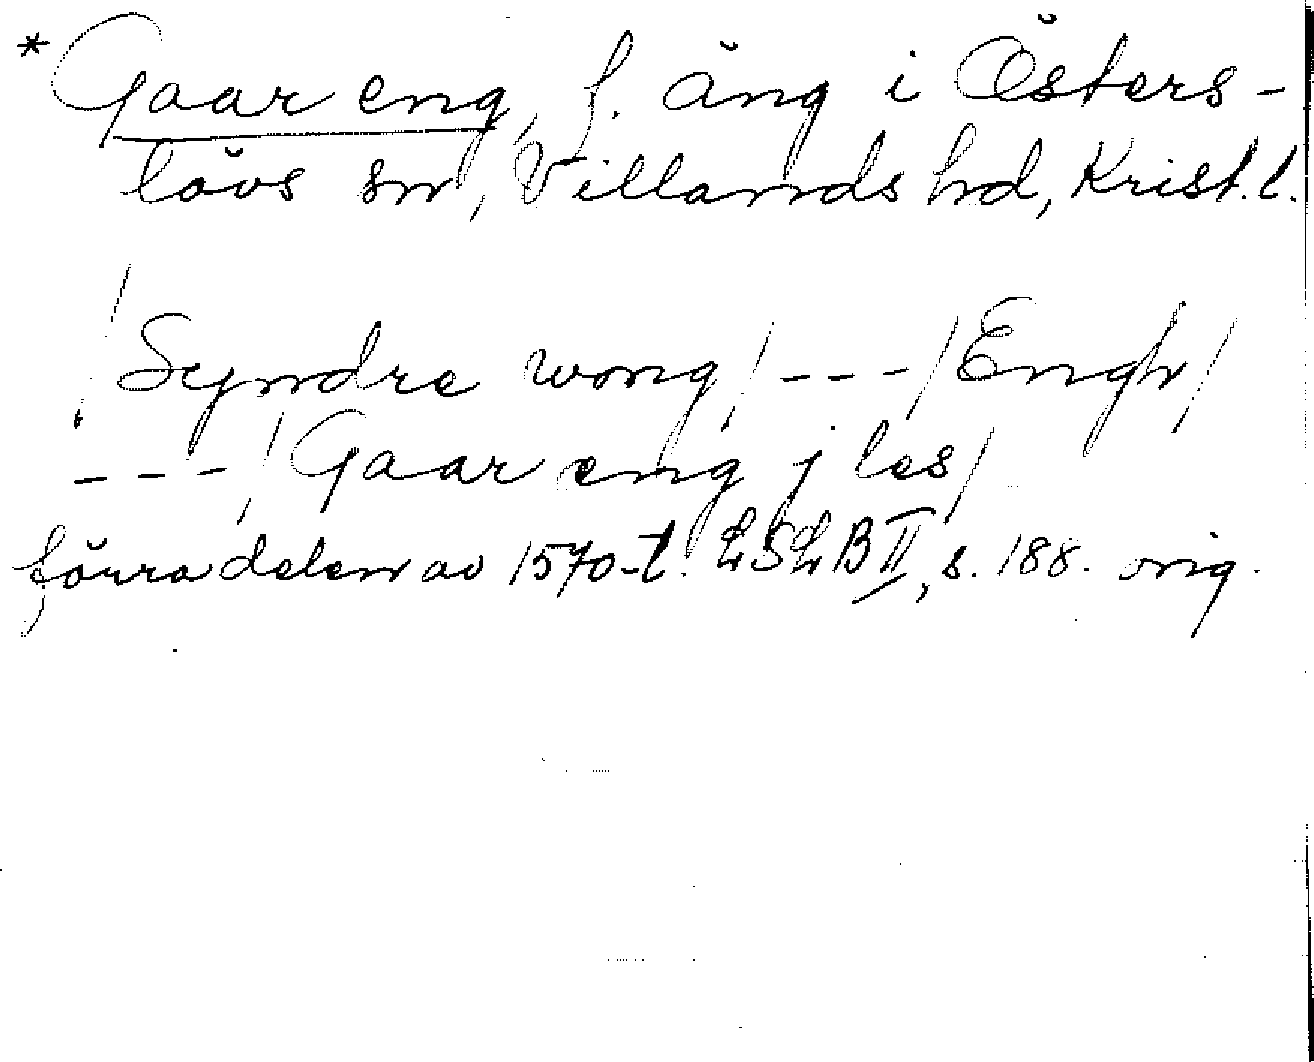 *Gaar eng, f. äng i Östers-
lövs sn, Villands hd, Krist.l.
/Syndre wong/ --- /Engh/
--- / Gaar eng j les/
förra delen av 1570-t. LSLB II, s. 188. orig.